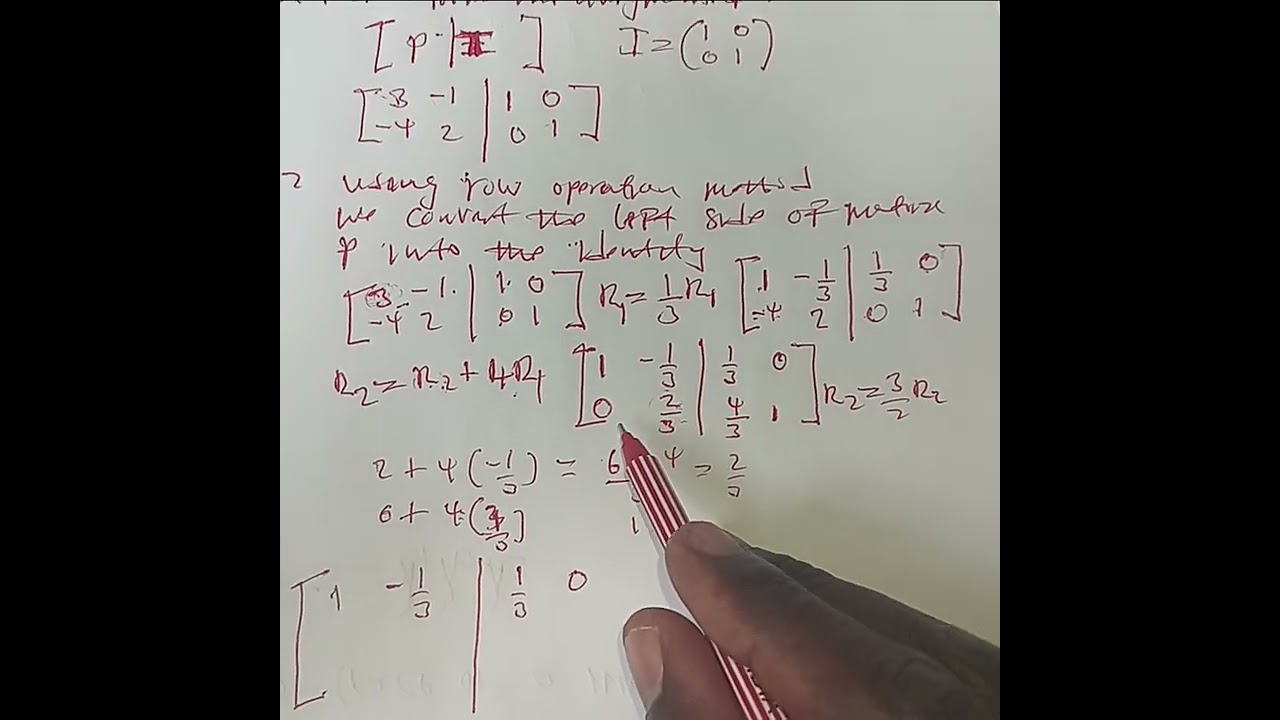 [ P | I ] I = (1 0 0 1)
[3 -1 | 1 0
-4 2 | 0 1]
2 using row operation method
we convert the left side of matrix
P into the identity
[3 -1 | 1 0 -4 2 | 0 1] R₁ = 1/3 R₁ [1 -1/3 | 1/3 0 -4 2 | 0 1]
R₂ = R₂ + 4R₁ [1 -1/3 | 1/3 0 0 2/3 | 4/3 1] R₂ = 3/2 R₂
2 + 4(-1/3) = 6 4 = 2/3
0 + 4(1/3)
[1 -1/3 | 1/3 0